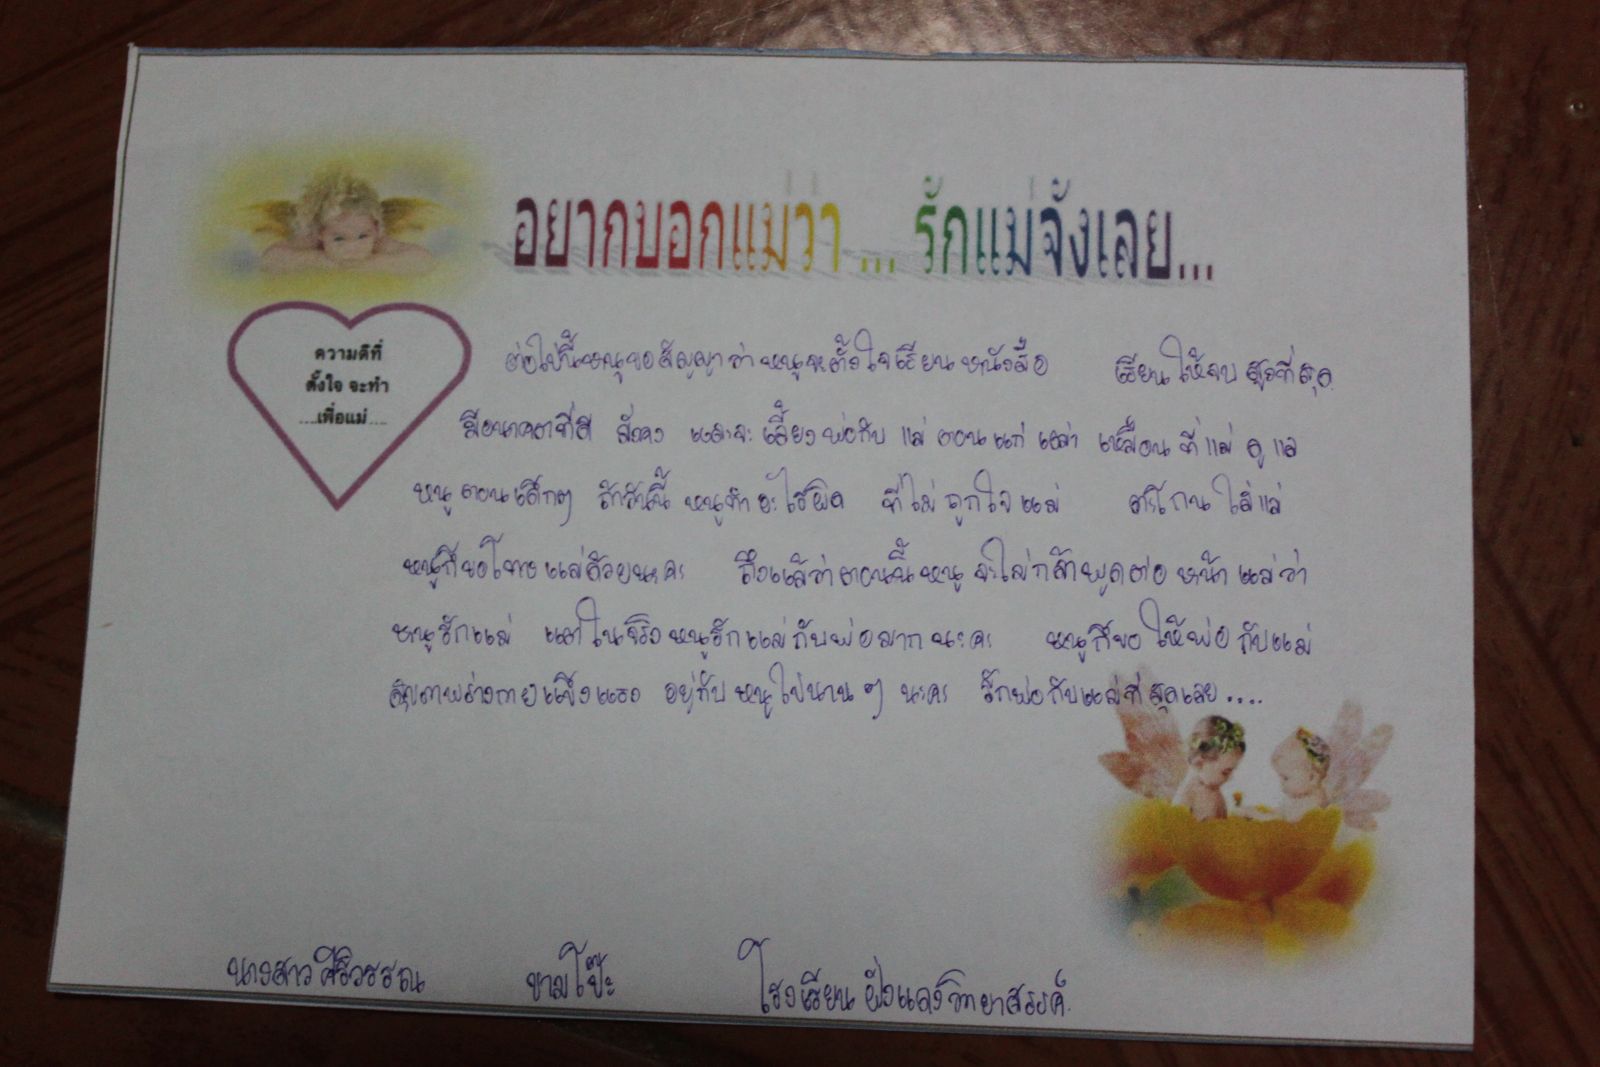 อยากบอกแม่ว่า... รักแม่จังเลย...
ความดีที่
ตั้งใจ จะทำ
....เพื่อแม่....
ต่อไปนี้หนูขอสัญญาว่าหนูจะตั้งใจเรียนหนังสือ เรียนให้จบสูงที่สุด
มีอนาคตที่ดี และจะเลี้ยงพ่อกับ แม่ ตอน แก่ เหมือน ที่ แม่ ดู แล
หนู ตอนเด็กๆ ถ้าวันนี้ หนูทำ อะไรผิด ที่ไม่ ถูกใจ แม่ ตะโกน ใส่แม่
หนูก็ขอโทษแม่ด้วยนะคะ ถึงแม้ว่าตอนนี้หนู จะไม่กล้าพูดต่อ หน้า แม่ว่า
หนูรักแม่ แต่ในจริงหนูรักแม่กับพ่อมากนะคะ หนูก็ขอให้พ่อกับแม่
สุขภาพร่างกายแข็งแรง อยู่กับ หนูไปนาน ๆ นะคะ รักพ่อกับแม่ที่สุดเลย....
นางสาวศิริวรรณ ขามโป๊ะ โรงเรียนฝั่งแดงวิทยาสรรค์